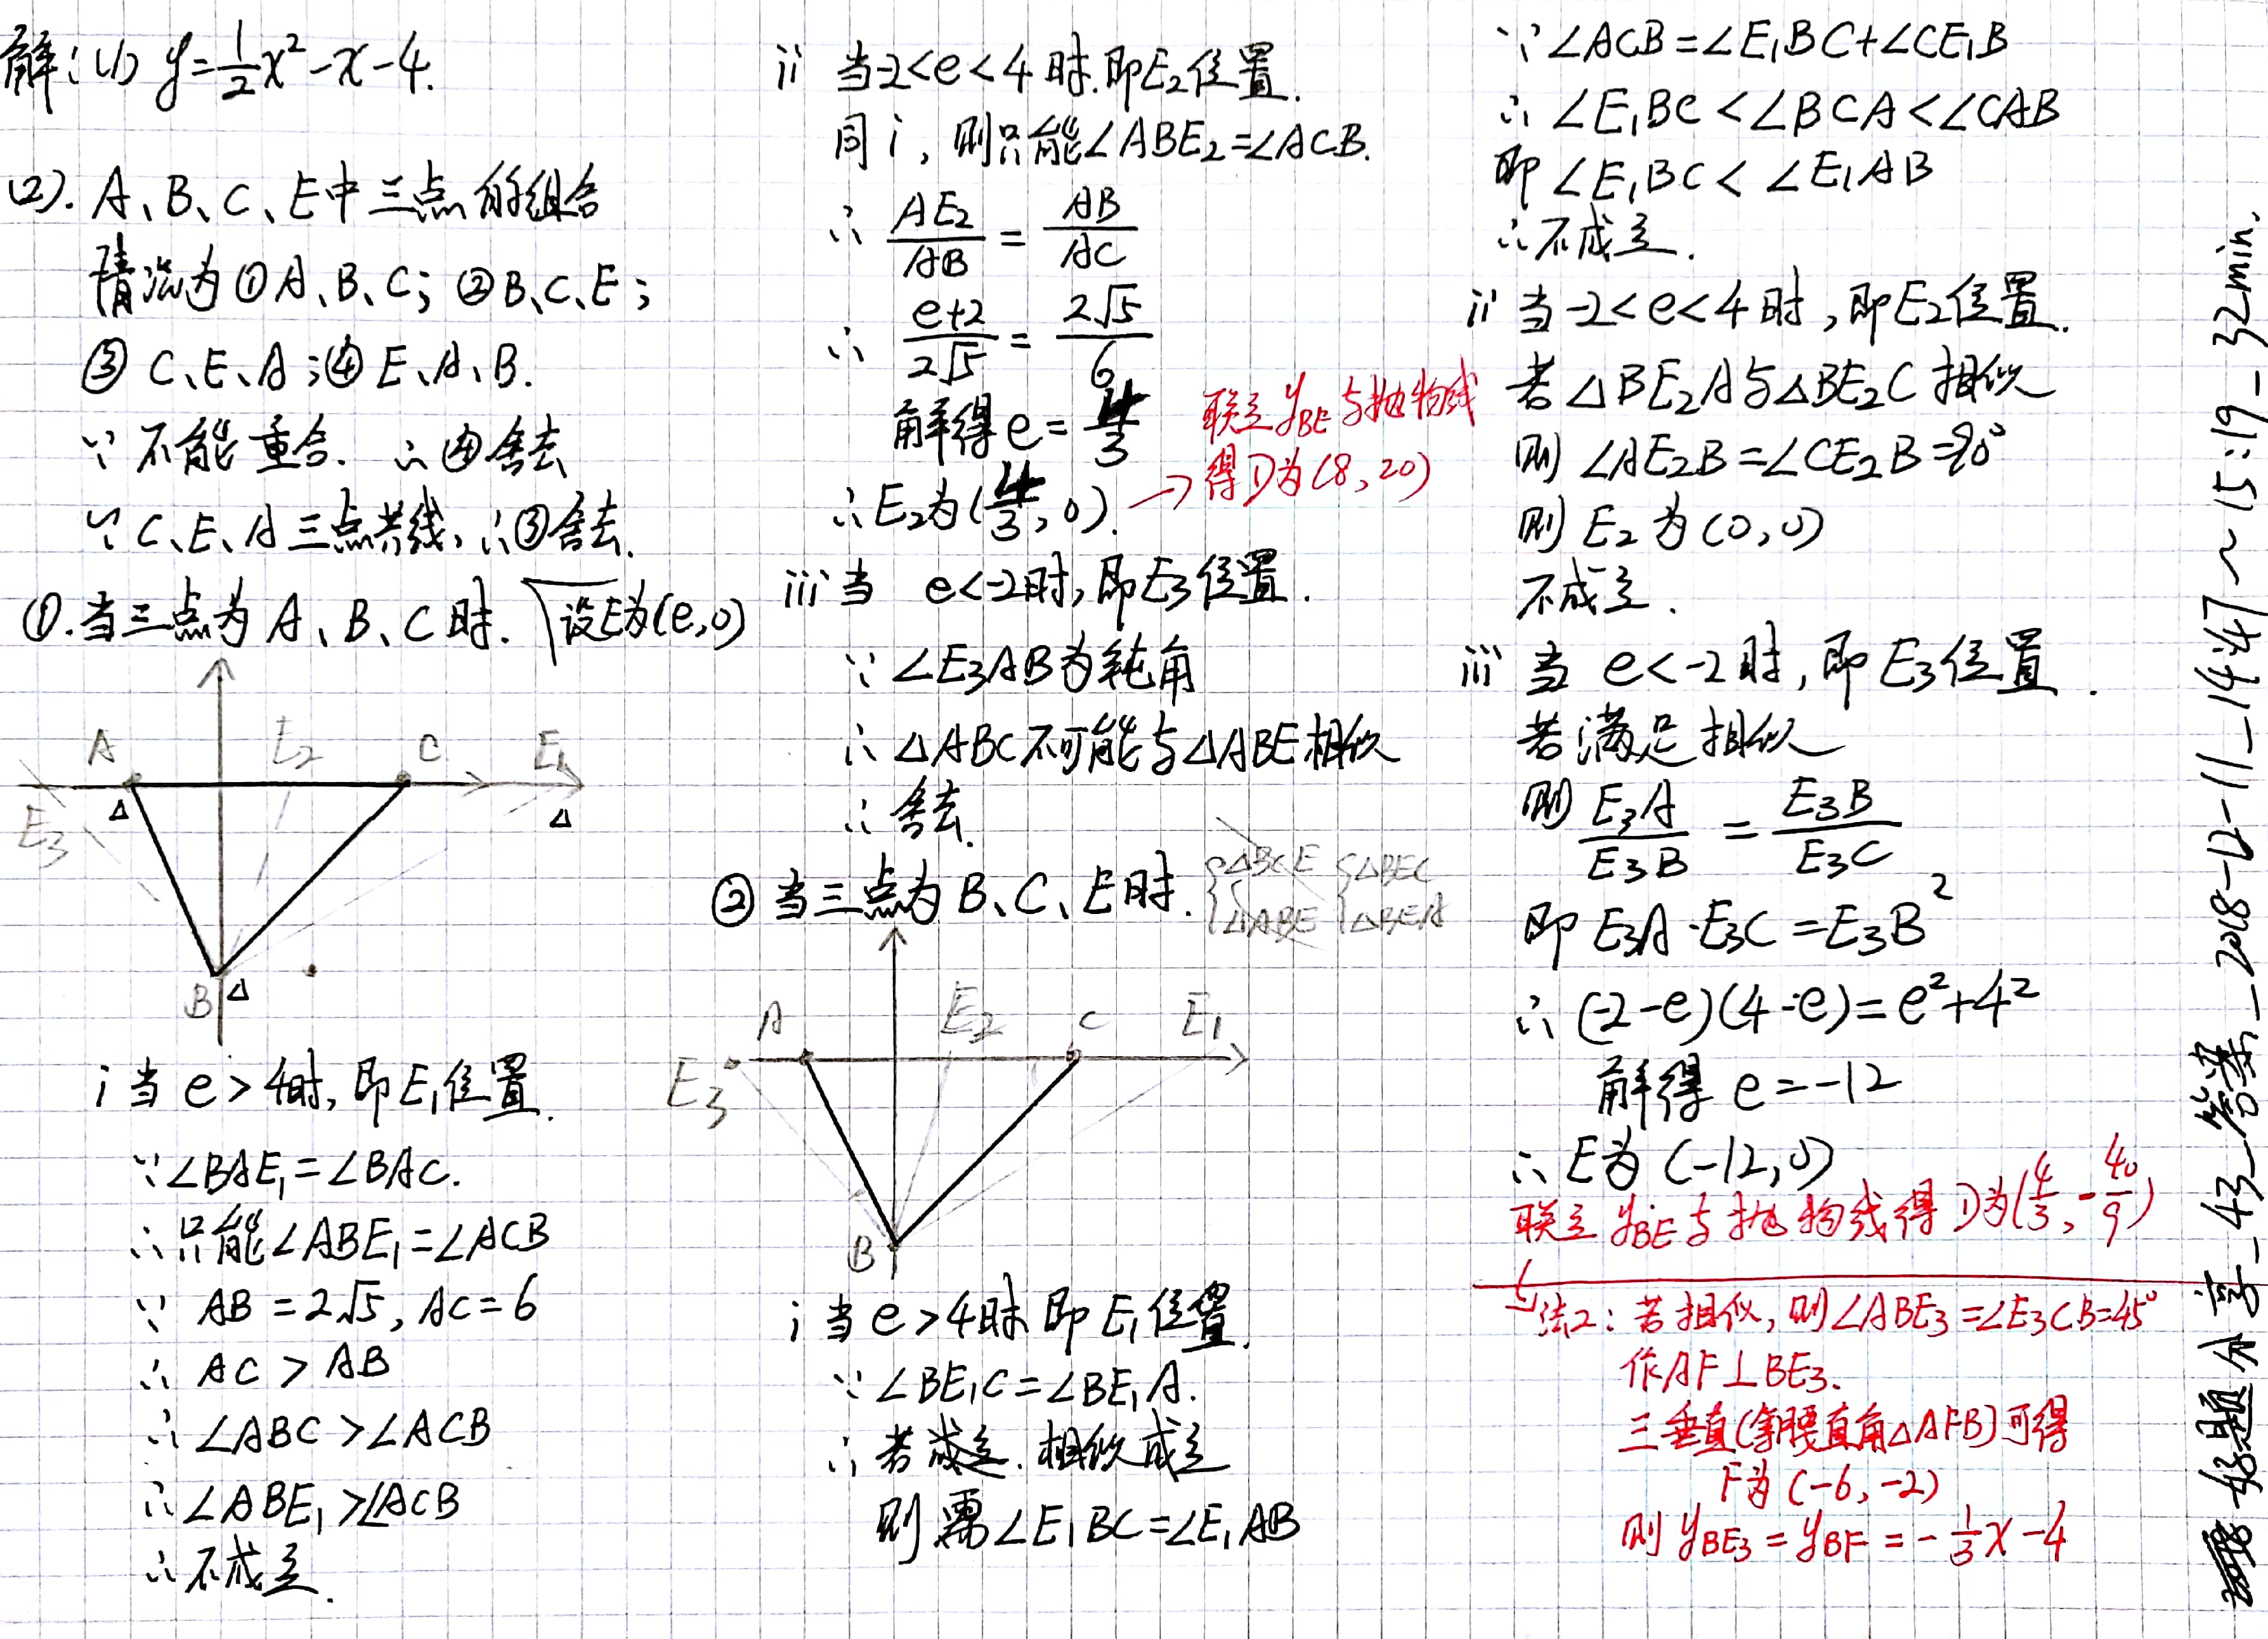 解:(1) y=1/2x²-x-4.
(2). A、B、C、E中三点的组合
情况为①A、B、C; ②B、C、E;
③ C、E、A;④ E、A、B.
∵ 不能重合. ∴④舍去
∵ C、E、A三点共线,∴③舍去.
①.当三点为A、B、C时. 设E为(e,0)
A E₂ C E₁
E₃
B
i 当 e>4时,即E₁位置.
∵∠BAE₁=∠BAC.
∴只能∠ABE₁=∠ACB
∵ AB=2√5, AC=6
∴ AC>AB
∴∠ABC>∠ACB
∴∠ABE₁>∠ACB
∴不成立.
ii 当-2<e<4时.即E₂位置.
同i,则只能∠ABE₂=∠ACB.
∴ AE₂/AB = AB/AC
∴ e+2/2√5 = 2√5/6
解得e=4/3
∴E₂为(4/3,0).
联立yBE与抛物线
→得D为(8,20)
iii 当 e<-2时,即E₃位置.
∵∠E₃AB为钝角
∴△ABC不可能与△ABE相似
∴舍去.
②当三点为B、C、E时. {△BCE {△BEC
{△ABE {△BEA
A E₂ C E₁
E₃
B
i 当e>4时 即E₁位置.
∵∠BE₁C=∠BE₁A.
∴若成立.相似成立
则需∠E₁BC=∠E₁AB
∵∠ACB=∠E₁BC+∠CE₁B
∴∠E₁BC<∠BCA<∠CAB
即∠E₁BC<∠E₁AB
∴不成立.
ii 当-2<e<4时,即E₂位置.
若△BE₂A与△BE₂C相似
则∠AE₂B=∠CE₂B=90°
则E₂为(0,0)
不成立.
iii 当 e<-2时,即E₃位置.
若满足相似
则 E₃A/E₃B = E₃B/E₃C
即E₃A·E₃C=E₃B²
∴(-2-e)(4-e)=e²+4²
解得 e=-12
∴E为(-12,0)
联立yBE与抛物线得D为(4/3,-40/9)
法2:若相似,则∠ABE₃=∠E₃CB=45°
作AF⊥BE₃.
三垂直(等腰直角△AFB)可得
F为(-6,-2)
则yBE₃=yBF=-1/3x-4
好题分享_43_答案_2018-12-11_14:47~15:19_32min.